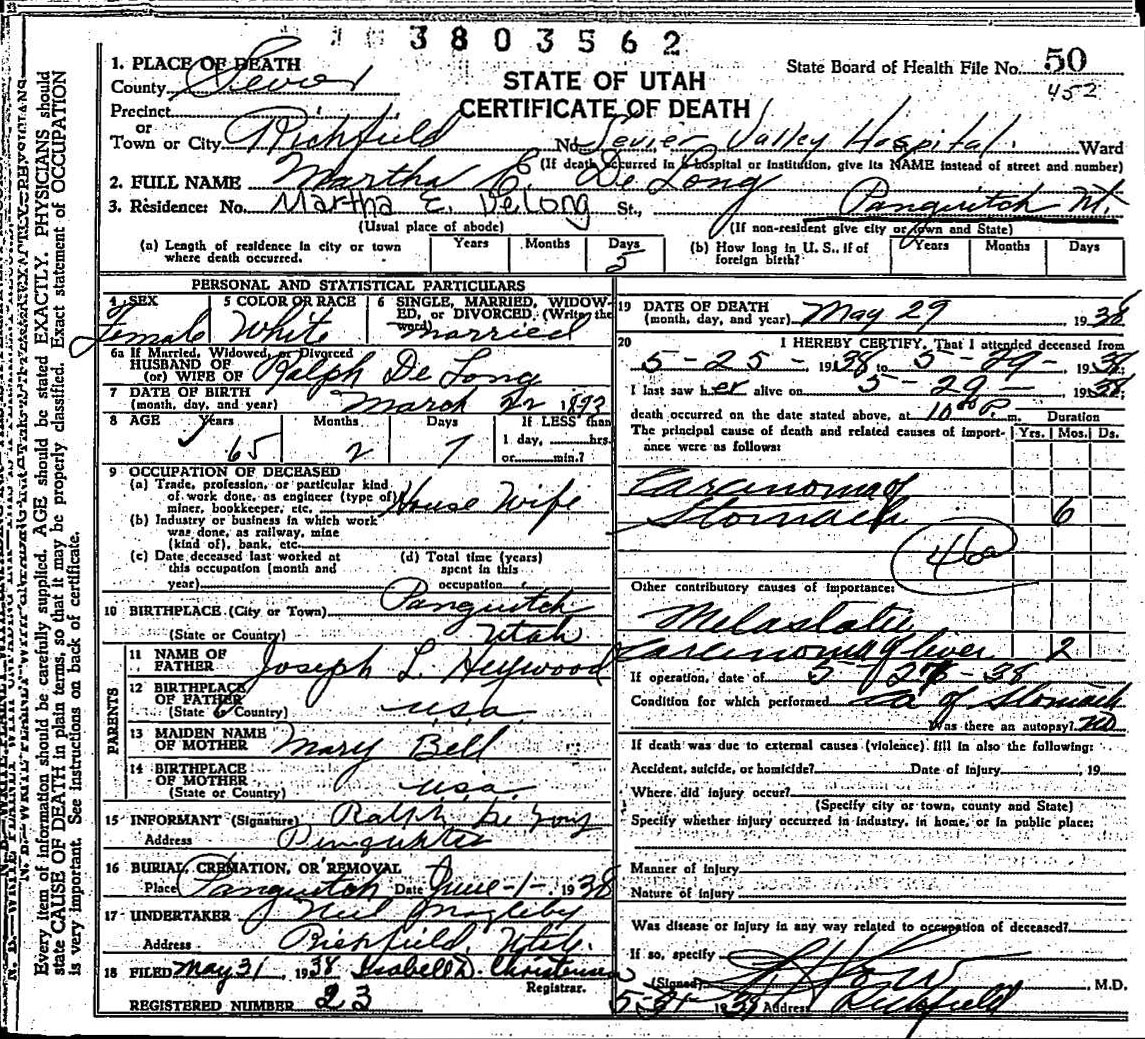 3803562
1. PLACE OF DEATH
County Sevier
STATE OF UTAH
CERTIFICATE OF DEATH
State Board of Health File No. 50
452
Precinct
or
Town or City Richfield No. Sevier Valley Hospital. Ward
(If death occurred in a hospital or institution, give its NAME instead of street and number)
2. FULL NAME Martha E. De Long
3. Residence: No. Martha E. DeLong St., Panguitch Ut.
(Usual place of abode) (If non-resident give city or town and State)
(a) Length of residence in city or town where death occurred. Years Months Days 5
(b) How long in U. S., if of foreign birth? Years Months Days
PERSONAL AND STATISTICAL PARTICULARS
4 SEX Female
5 COLOR OR RACE White
6 SINGLE, MARRIED, WIDOWED, or DIVORCED. (Write the word) married
6a If Married, Widowed, or Divorced
HUSBAND OF
(or) WIFE OF Ralph De Long
7 DATE OF BIRTH
(month, day, and year) March 22 1873
8 AGE Years 65 Months 2 Days 7 If LESS than
1 day, hrs.
or min.?
9 OCCUPATION OF DECEASED
(a) Trade, profession, or particular kind
of work done, as engineer (type of)
miner, bookkeeper, etc. House Wife
(b) Industry or business in which work
was done, as railway, mine
(kind of), bank, etc.
(c) Date deceased last worked at
this occupation (month and
year)
(d) Total time (years)
spent in this
occupation
10 BIRTHPLACE (City or Town) Panguitch
(State or Country) Utah
PARENTS
11 NAME OF
FATHER Joseph L. Heywood
12 BIRTHPLACE
OF FATHER
(State or Country) U.S.A.
13 MAIDEN NAME
OF MOTHER Mary Bell
14 BIRTHPLACE
OF MOTHER
(State or Country) U.S.A.
15 INFORMANT (Signature) Ralph De Long
Address
16 BURIAL, CREMATION, OR REMOVAL
Place Panguitch Date June-1-1938
17 UNDERTAKER Neil Magleby
Address Richfield, Utah.
18 FILED May 31, 1938 Isabell D. Christensen
Registrar.
REGISTERED NUMBER 23
19 DATE OF DEATH
(month, day, and year) May 29 1938
20 I HEREBY CERTIFY, That I attended deceased from
5-25-, 1938 to 5-29-1938;
I last saw her alive on 5-29-1938;
death occurred on the date stated above, at 10 P. m.
Duration
The principal cause of death and related causes of importance were as follows: Yrs. Mos. Ds.
Carcinoma of
Stomach 6
46a
Other contributory causes of importance:
Metastatic
Carcinoma of liver 2
If operation, date of 5-27-38
Condition for which performed ca of Stomach
Was there an autopsy? no
If death was due to external causes (violence) fill in also the following:
Accident, suicide, or homicide? Date of injury , 19
Where did injury occur?
(Specify city or town, county and State)
Specify whether injury occurred in industry, in home, or in public place:
Manner of injury
Nature of injury
Was disease or injury in any way related to occupation of deceased?
If so, specify
(Signed) M.D.
5-31 1938 Address Richfield
Every item of information should be carefully supplied. AGE should be stated EXACTLY. PHYSICIANS should
state CAUSE OF DEATH in plain terms, so that it may be properly classified. Exact statement of OCCUPATION
is very important. See instructions on back of certificate.